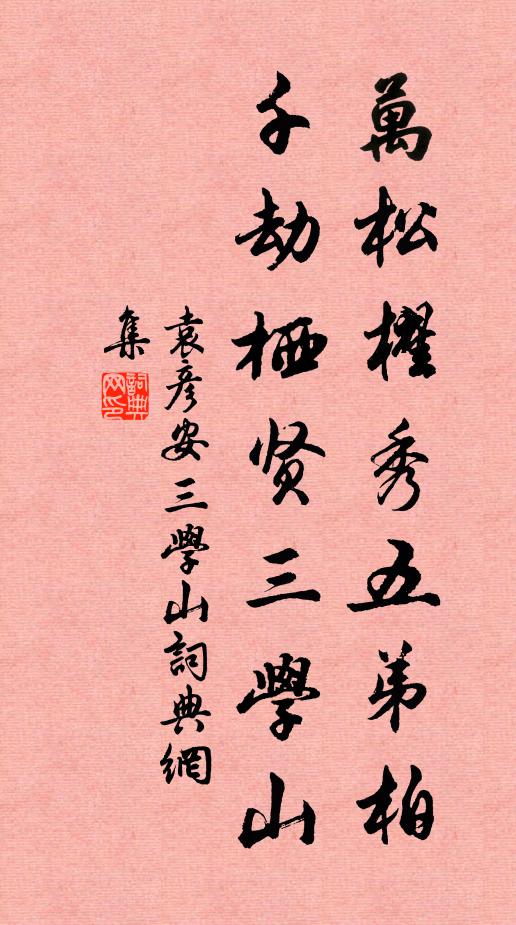 萬松櫂秀五弟柏
千劫栖贤三學山
袁彦安三學山詞典網
集
詞典
网印